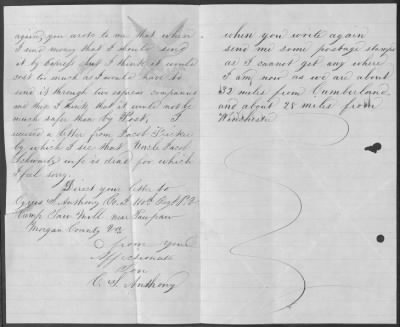 again, you wrote to me that when
I send money that I should send
it by Express but I think it would
cost too much as I would have to
send it through two express companies
and this I think, that it would not be
much safer than by Post, I
received a letter from Jacob
by which I see that Uncle Jacob
Schwartz wife is dead for which
I feel sorry.
Direct your letter to
Cyrus S. Anthony Co. 110th Regt P.V.
Camp Saw Mill near Paupau
Morgan County Va
From your
Affectionate
Son
C. S. Anthony
when you write again
send me some postage stamps
as I cannot get any where
I am now as we are about
32 miles from Cumberland
and about 28 miles from
Winchester